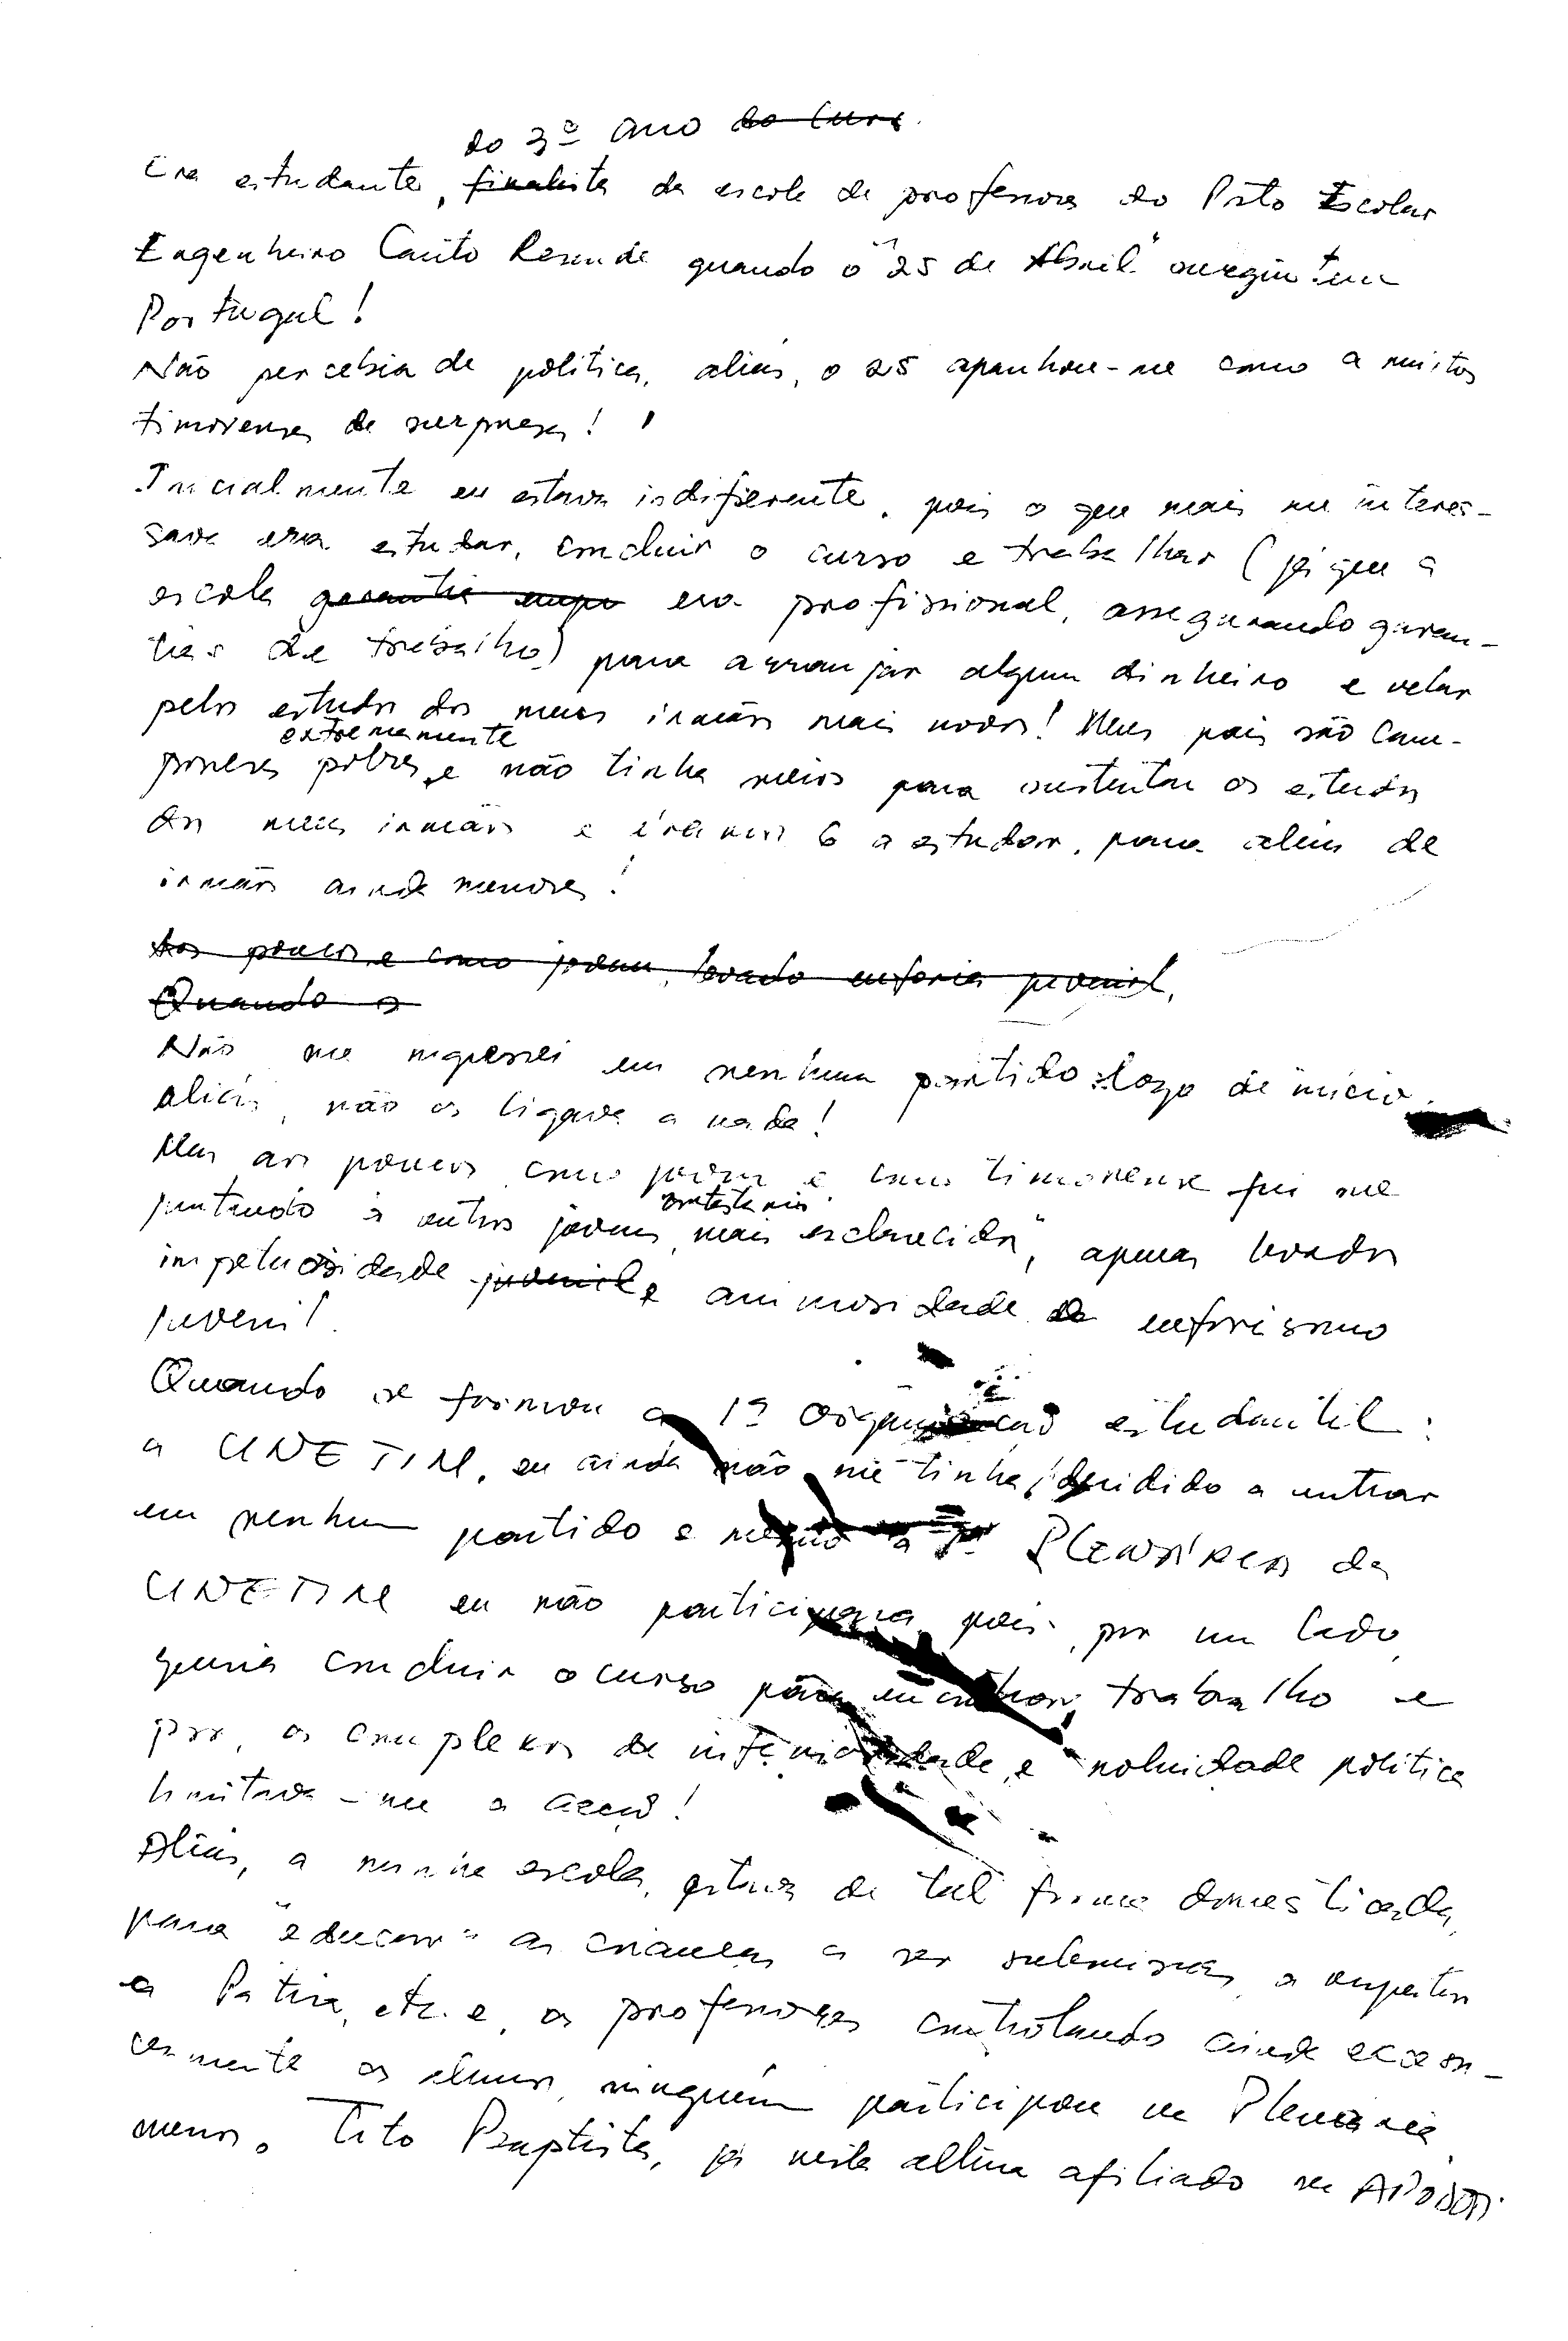 do 3º ano do Curs
Era estudante, finalista da escola de professores do Posto Escolar
Engenheiro Canto Resende quando o "25 de Abril" surgiu em
Portugal!
Não percebia de política, aliás, o 25 apanhou-me como a muitos
timorenses de surpresa!
Inicialmente eu estava indiferente, pois o que mais me interes-
sava era estudar, concluir o curso e trabalhar (já que a
escola garantia empr era profissional, assegurando garan-
tias de trabalho) para arranjar algum dinheiro e velar
pelos estudos dos meus irmãos mais novos! Meus pais são cam-
extremamente
poneses pobres e não tinha meios para sustentar os estudos
dos meus irmãos e éramos 6 a estudar, para além de
irmãos ainda menores!
Aos poucos e como jovem, levado euforia juvenil,
Quando o
Não me ingressei em nenhum partido logo de início.
aliás, não os ligava a nada!
Mas aos poucos como jovem e como timorense fui me
juntando a outros jovens mais esclarecidos", apenas levados
impetuosidade juvenil e animosidade de euforismo
juvenil.
Quando se formou a 1ª organização estudantil:
a UNETIM, eu ainda não me tinha decidido a entrar
em nenhum partido e mesmo a 1ª Plenária da
UNETIM eu não participara, pois, por um lado,
queria concluir o curso para encontrar trabalho e
por, os complexos de inferioridade e nolucidade política
limitava-me a acção!
Aliás, a minha escola, estava de tal forma domesticada,
para "educar" as crianças a ser submissas, a respeitar
a Pátria, etc. e, os professores controlando ainda
os alunos, ninguém participou na Plenária
menos. Tito Baptista, já nesta altura afiliado na APODETI